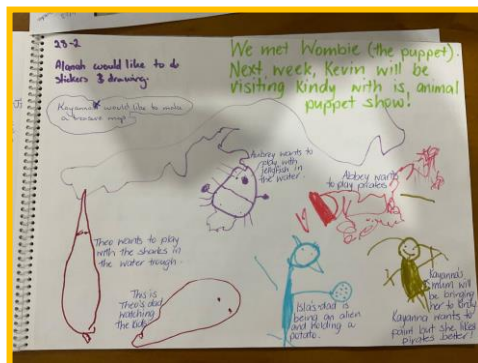 28-2
Alanah would like to do
stickers & drawing.
We met Wombie (the puppet).
Next week, Kevin will be
visiting Kindy with is, animal
puppet show!
Kayanna would like to make
a treasure map.
Aubrey wants to
play with
Jellyfish in
the water.
Abbey wants
to play pirates
Theo wants to play
with the sharks in
the water trough.
This is
Theo's dad
watching
the kids
Isla's dad is
being an alien
and holding a
potato.
Kayanna's
mum will
be bringing
her to Kindy
Kayanna wants to
paint but she likes
pirates better!